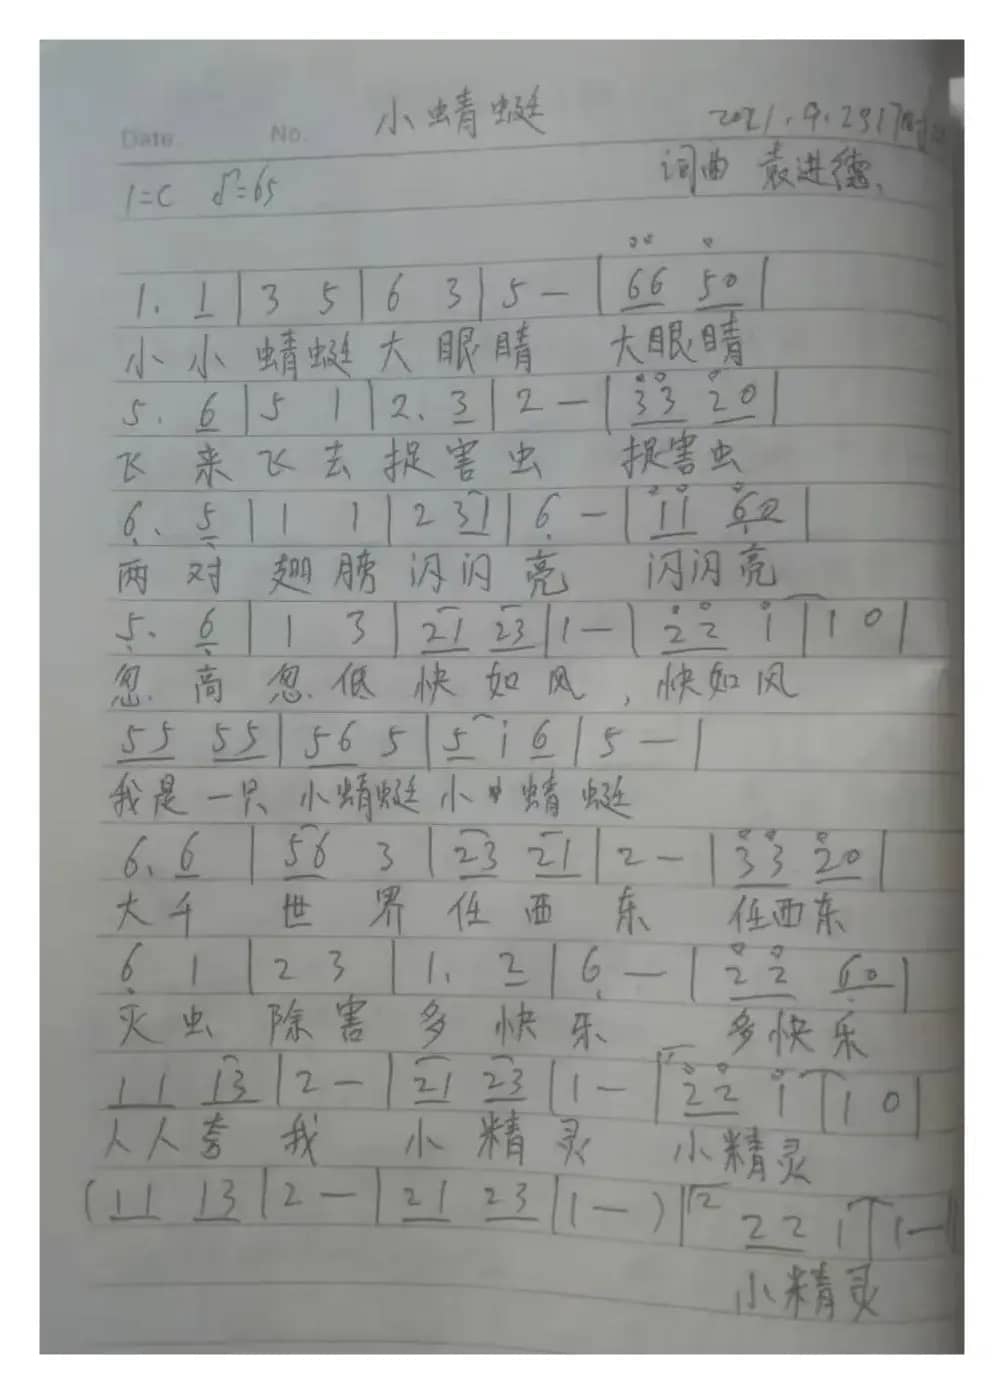 小蜻蜓
Date. No. 2021.9.23 17时
1=C ♩=65 词曲 袁进德.
1. 1 | 3 5 | 6 3 | 5 — | 66 50 |
小小蜻蜓大眼睛 大眼睛
5. 6 | 5 1 | 2. 3 | 2 — | 33 20 |
飞来飞去捉害虫 捉害虫
6. 5 | 1 1 | 2 31 | 6 — | 11 60 |
两对翅膀闪闪亮 闪闪亮
5. 6 | 1 3 | 21 23 | 1 — | 22 1 | 1 0 |
忽高忽低快如风,快如风
55 55 | 56 5 | 5 1 6 | 5 — |
我是一只小蜻蜓小蜻蜓
6. 6 | 56 3 | 23 21 | 2 — | 33 20 |
大千世界任西东 任西东
6 1 | 2 3 | 1. 2 | 6 — | 22 60 |
灭虫除害多快乐 多快乐
11 13 | 2 — | 21 23 | 1 — | 22 1 | 1 0 |
人人夸我小精灵 小精灵
( 11 13 | 2 — | 21 23 | 1 — ) | 2 22 1 | 1 — ||
小精灵